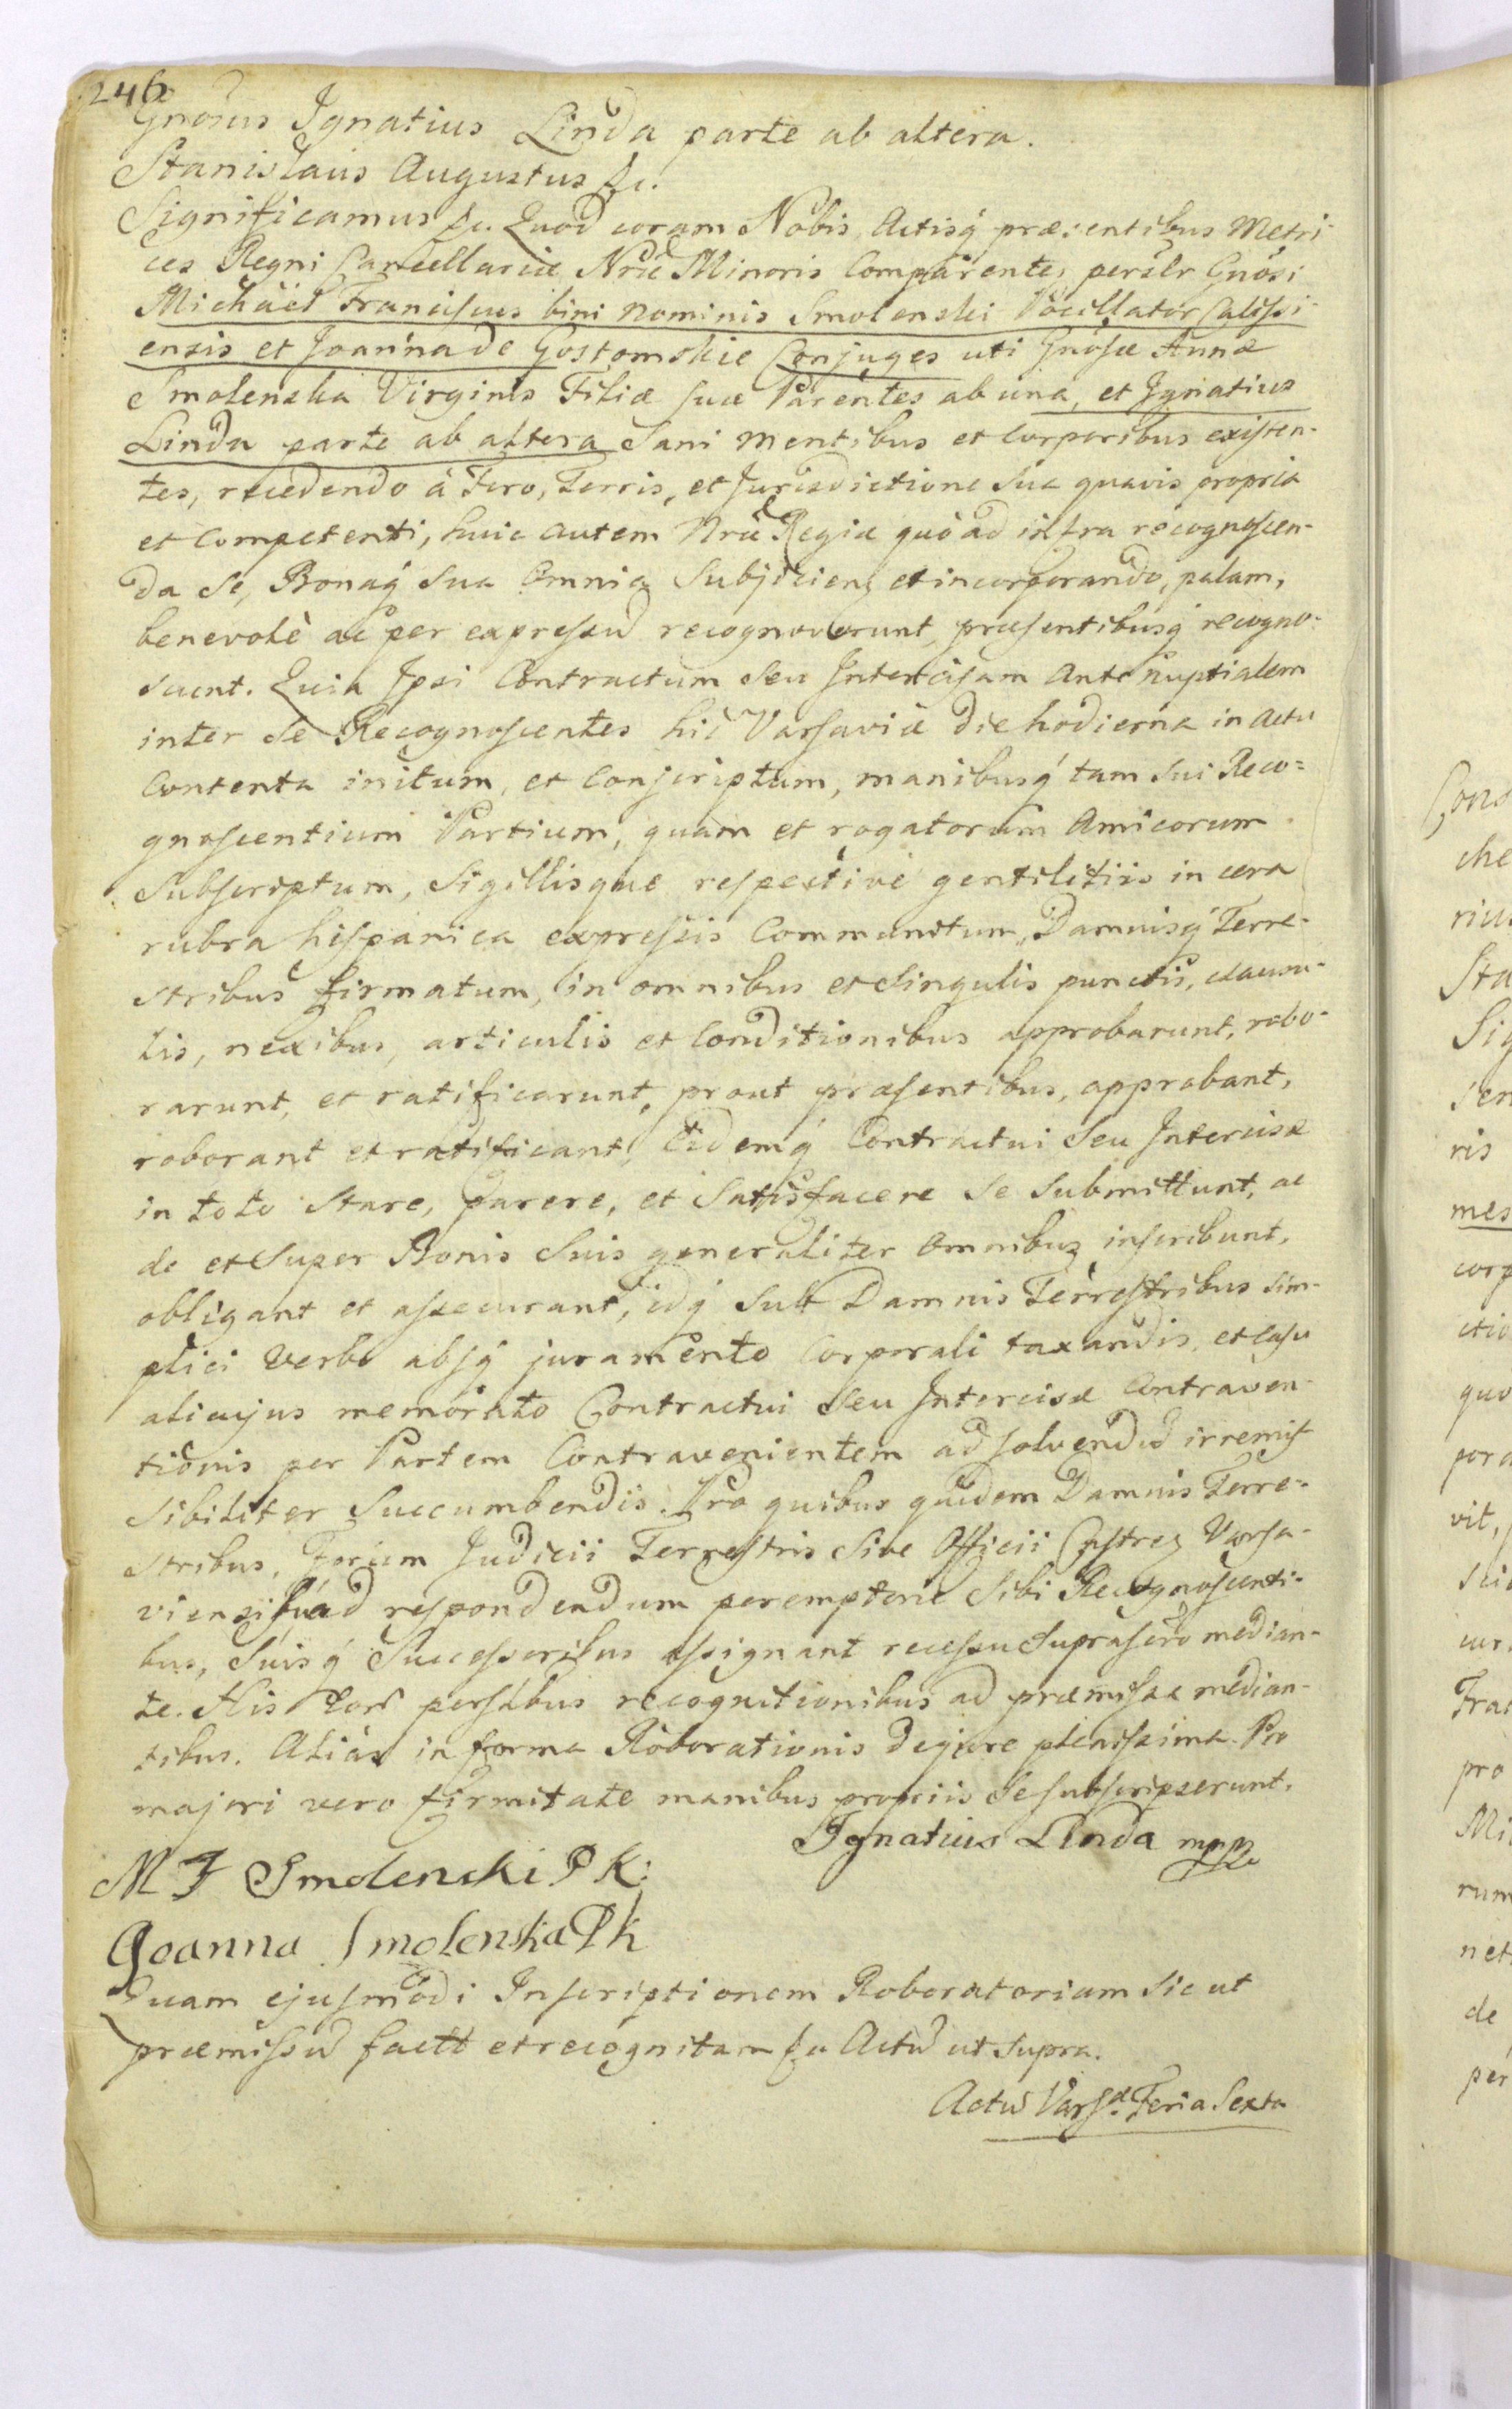 246
Gnosus Ignatius Linda parte ab altera.
Stanislaus Augustus &c.
Significamus &c. Quod coram Nobis Actisq́ præsentibus Metri-
ces Regni Cancellariæ Nræ Minoris Comparentes persłr Gnosi
Michäel Franciscus bini nominis Smolenski Pocillator Calissi-
ensis et Joanna de Gostomskie Conjuges uti Gnosæ Annæ
Smolenska Virginis Filiæ suæ Parentes ab una, et Ignatius
Linda parte ab altera Sani mentibus et Corporibus existen-
tes, recedendo à Foro, Terris, et Jurisdictione sua quavis propria
et Competenti, huic autem Nræ Regiæ quò ad infra recognoscen-
da se, Bonaq́ sua Omnia Subjiciens et incorporando, palam,
benevolè ac per expressũ recognoverunt, præsentibusq́ recogno-
scunt. Quia Ipsi Contractum seu Intercisam Ante nuptialem
inter se Recognoscentes hic Varsaviæ die hodierna in Actu
Contenta initum, et Conscriptum, manibusq́ tam sui Reco=
gnoscentium Partium, quam et rogatorum Amicorum
Subscriptum, Sigillisque respectivè gentilitiis in cera
rubra hispanica expressis Communitum, Damnisq́ Terre-
stribus firmatum, in omnibus et singulis punctis, clausu-
lis, nexibus, articulis et Conditionibus approbarunt, robo-
rarunt, et ratificarunt, prout præsentibus, approbant,
roborant et ratificant, Eidemq́ Contractui seu Intercisæ
in toto stare, parere, et Satisfacere se submittunt, ac
de et super Bonis suis generaliter Omnibus inscribunt,
obligant et assecurant, idq́ sub Damnis Terrestribus sim-
plici verbo absq́ juramento Corporali taxandis, et casu
alicujus memorato Contractui seu Intercisæ Contraven-
tionis per Partem Contravenientem ad solvendũ irremis-
sibiliter succumbendis. Pro quibus quidem Damnis Terre-
stribus, Forum Judicii Terrestris sive Officii Castren Varsa-
viensis ad respondendum peremptorie sibi Recognoscenti-
bus, suisq́ Successoribus assignant recessu suprascro median-
te. His eor persłbus recognitionibus ad præmissa median-
tibus. Alias in forma Roborationis de jure plenissima. Pro
majori vero firmitate manibus propriis se subscripserunt.
Ignatius Linda mpp
M F Smolenski P K:
Joanna Smolenska P K
Quam ejusmodi Inscriptionem Roboratoriam sic ut
præmissũ factt et recognitam &c Actũ ut supra.
Actũ Varsæ Feria Sexta